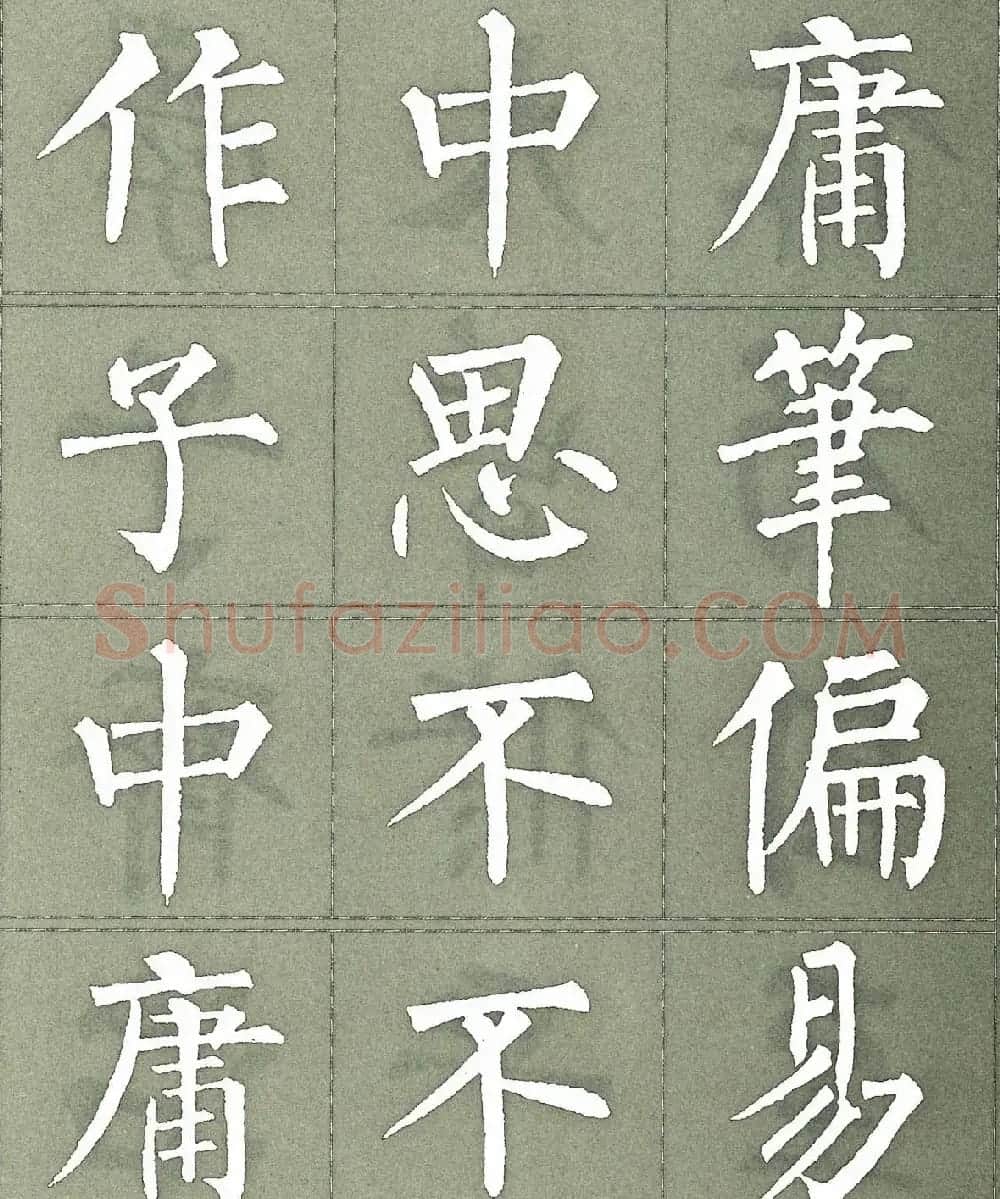 作中庸
子思筆
中不偏
庸不易
Shufaziliao.COM